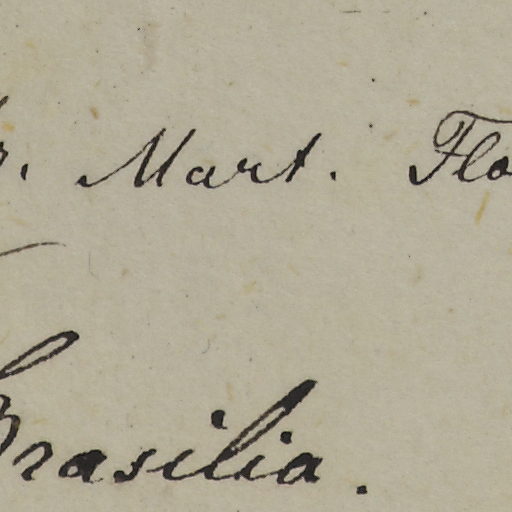 Mart. Flo
Brasilia.